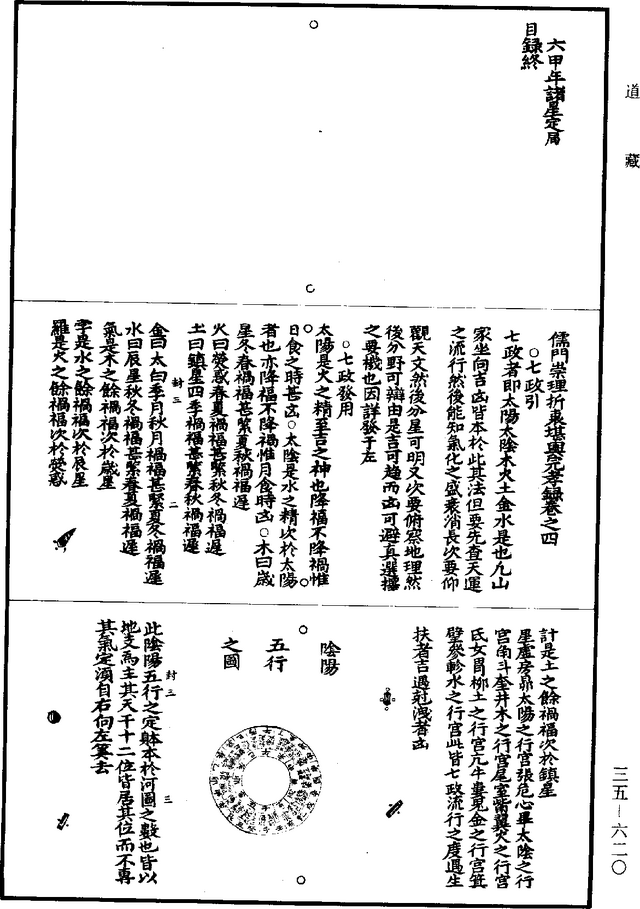 道藏
六甲年諸星定局
目録終
儒門崇理折衷堪輿完孝錄卷之四
○七政引
七政者即太陽太陰木火土金水是也凡山
家坐向吉凶皆本於此其法但要先查天運
之流行然後能知氣化之盛衰消長次要仰
觀天文然後分星可明又次要俯察地理然
後分野可辯由是吉可趨而凶可避真選擇
之要機也因詳發于左
○七政發用
太陽是火之精至吉之神也降福不降禍惟
日食之時甚凶○太陰是水之精次於太陽
者也亦降福不降禍惟月食時凶○木曰歲
星冬春禍福甚緊夏秋禍福遲
火曰熒惑春夏禍福甚緊秋冬禍福遲
土曰鎮星四季禍福甚緊春秋禍福遲
封三
二
金曰太白季月秋月禍福甚緊夏冬禍福遲
水曰辰星秋冬禍福甚緊春夏禍福遲
氣是木之餘禍福次於歲星
孛是水之餘禍福次於辰星
羅是火之餘禍福次於熒惑
計是土之餘禍福次於鎮星
星虛房昴太陽之行宮張危心畢太陰之行
宮角斗奎井木之行宮尾室觜翼火之行宮
氐女胃柳土之行宮亢牛婁鬼金之行宮箕
壁參軫水之行宮此皆七政流行之度遇生
扶者吉遇剋洩者凶
陰陽
五行
之圖
封三
三
此陰陽五行之定躰本於河圖之數也皆以
地支為主其天干十二位皆居其位而不專
其氣定須自右向左筭去
三五—六二〇